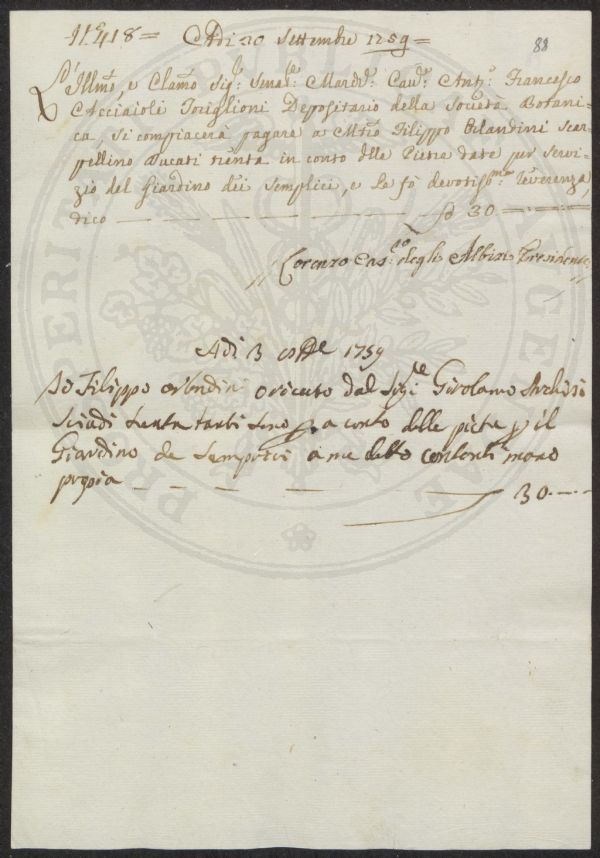 N.º 418 = Adi 30 Settembre 1759 =
88
L'Illmõ, e Clarmõ Sig.r Senat.e March.e Cav.e Ant.o Francesco
Acciaioli Toriglioni Depositario della Società Botani=
ca, si compiacerà pagare a Mtro Filippo Orlandini Scar=
pellino Ducati trenta in conto delle Pietre date per servi=
zio del Giardino dei Semplici, e le fò devotiss.ma reverenza,
dico — — — 30 — —
Lorenzo Gas.ro degli Albizi Presidente
Adi 3 ottbe 1759
Io Filippo orlndini o riceuto dal Sigre Girolamo
Scudi trenta tanti sono p a conto delle pietre p il
Giardino de Semprici a me detto contanti mano
propia — — — — 30 — —
PROSPERITATI PUBLICAE AUGENDAE